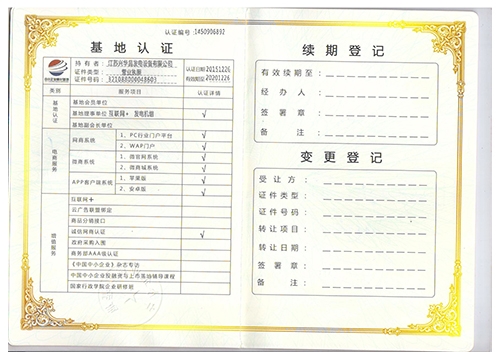 认证编号：1450906892
基地认证
持有者：江苏兴华昌发电设备有限公司
证件类型：营业执照
证件号码：321088000048603
认证日期20151226
有效期至20201226
类别 服务项目 认证详情
基地认证
基地会员单位
基地理事单位 互联网+ 发电机组 √
基地副会长单位
电商服务
网商系统 1、PC行业门户平台 √
2、WAP门户 √
微商系统 1、微官网系统 √
2、微商城系统 √
APP客户端系统 1、苹果版 √
2、安卓版 √
增值服务
互联网+
云广告联盟绑定
商品分销接口
诚信网商认证 √
政府采购入围
商务部AAA级认证
《中国中小企业》杂志专访
中国中小企业投融资与上市基础辅导课程
国家行政学院企业研修班
续期登记
有效续期至：
经办人：
签署章：
备注：
变更登记
受让方：
证件类型：
证件号码：
转让项目：
转让日期：
签署章：
备注：